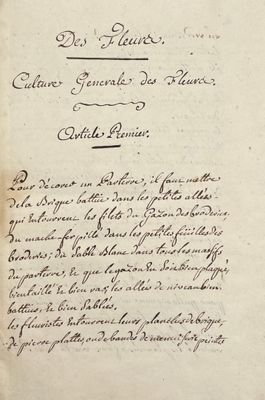 Des Fleurs.
Culture Generale des Fleurs.
Article Premier.
Pour décorer un Parterre, il faut mettre
de la Brique battüe dans les petites allées
qui Entourrent les filets du Gazon des broderies
du mache-fer pilé dans les petites feüilles des
broderies; du Sable Blanc dans tous les massifs
du parterre, & que le gazon En Soit bien plaqué,
bien taillé & bien ras; les allées de niveau bien
battües, & bien Sablées.
les fleuristes Entourrent leurs planches de brique,
de pierre plattes, ou de bandes de peintes